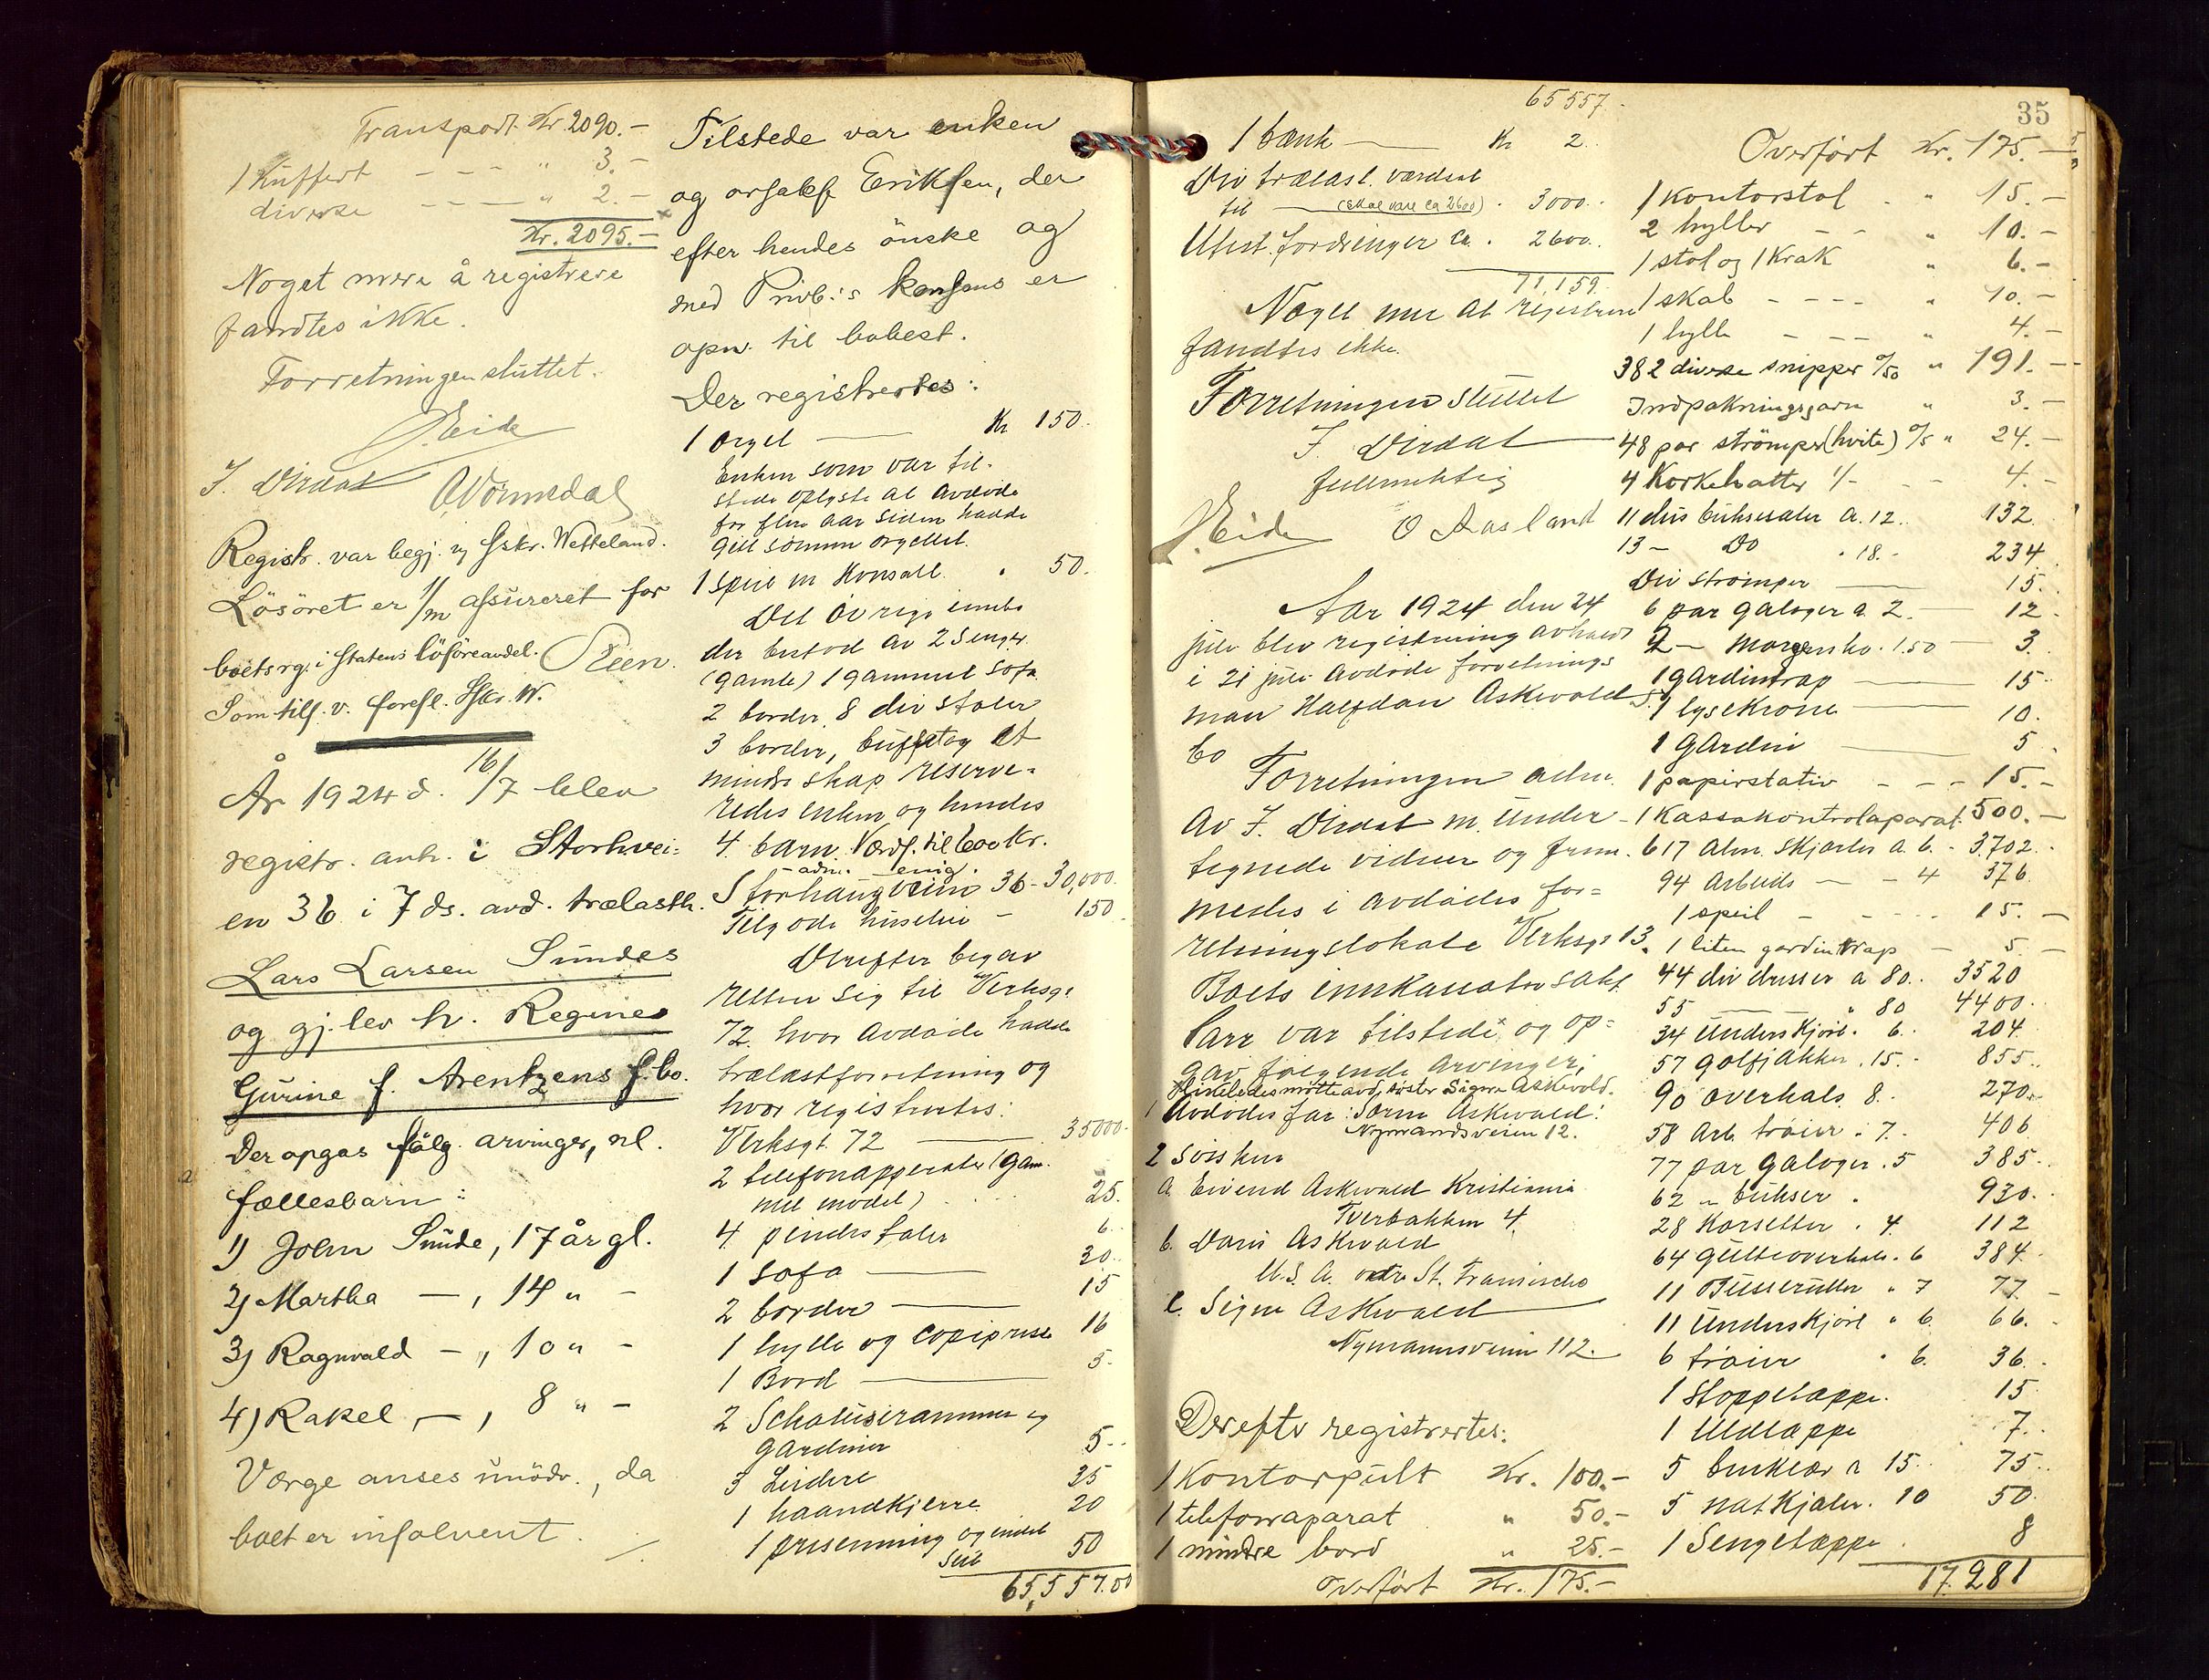 Transport Kr 2090.-
1 Kuffert - - - " 3.-
diverse - - - " 2.-
Kr. 2095.-
Noget mere å registrere
fandtes ikke.
Forretningen sluttet.
Eide
J. Dirdal
Registr. var begj. v/ Sskr. Wetteland.
Lösöret er 1/1 m assureret for
boets rg. i Statens löföreavdel.
Som tilf. v. forefl. Sskr. W.
År 1924 d. 16/7 blev
registr. avh. i Storhvei=
en 36 i 7 ds. avd. trælasth.
Lars Larsen Sundes
og gj.lev h. Regine
Gurine f. Arentzens f.bo.
Der opgas fölg. arvinger, nl.
fællesbarn:
1) John Sunde, 17 år gl.
2) Martha - , 14 " -
3) Ragnvald - , 10 " -
4) Rakel - , 8 " -
Værge anses unödv., da
boet er insolvent.
Tilstede var enken
og orsakf Eriksen, der
efter hendes önske og
med Privb.s konsens er
opn. til bobest.
Der registrertes:
1 orgel Kr 150.
Enken som var til-
stede oplyste at avdöde
for flere aar siden hadde
git sönnen orgellet.
1 speil m Konsoll. " 50.
Det övrige innbo
der bestod av 2 Senger
(gamle) 1 gammel sofa
2 border, 8 div stoler
3 border, buffet og et
mindre skap reserve=
redes enken og hendes
4 barn. Værdf. til 600 Kr.
- adm. enig.
Storhaugveien 36 - 30,000.
Tilgode husleie - 150.
Derefter begav
retten sig til Verksgt
72 hvor avdöde hadde
trælastforretning og
hvor registrertes:
Verksgt 72 35000.
2 telefonapperater (gam.
mel model) 25.
4 pindestoler 6.
1 Sofa 20.
2 border 15
1 hylle og copipresse 16
1 Bord 5.
2 Schalusirammer og
gardiner 5.
3 Leidere 25
1 haandkjerre 20
1 presenning og endel
50
65,557.00
65557.
35
1 bænk Kr 2.
Div trælast. værdsat
til (skal være ca 2600) . 3000.
Utest. fordringer ca . 2600.
71,159.
Noget mer at registrere
fandtes ikke.
Forretningen sluttet
J. Dirdal
fullmektig
Eide O Aasland
Aar 1924 den 24
juli blev registrering avholdt
i 21 juli avdöde forretnings
man Halfdan Askvolds
bo
Forretningen adm.
av J. Dirdal m. under-
tegnede vidner og frem.
medes i avdödes for=
retningslokale Verksgt 13.
Boets innkallator sakf.
Parr var tilstede og op=
gav fölgende arvinger;
Likeledes mötte avd. söster Signe Askevold.
1 Avdödes far: Sören Askvold:
Nymandsveien 12.
2 Söisken
a. Eivend Askvold Kristiania
Tverbakken 4.
b. Doris Askvold
U.S.A. St. Francisco
c. Signe Askvold
Nymannsveien 112.
Derefter registrertes:
1 Kontorpult Kr. 100.-
1 telefonaparat " 50.-
1 mindre bord " 25.-
Overfört Kr. 175.-
Overfört Kr. 175.-
1 Kontorstol " 15.-
2 hyller - - " 10.-
1 stol og 1 Krak " 6.-
1 skab - - - - " 10.-
1 hylle - - - 4.-
382 diverse snipper a/50 " 191.-
Indpakningsgarn " 3.-
48 par strömper (hvite) a/5 " 24.-
4 Korkehatter 1/- - - 4.-
11 dus buksesæler a. 12.. 132.
13 - Do . 18.- 234.
Div strömper 15.
6 par galoger a. 2. 12.
2 - Morgensko . 1.50 3.
1 gardintrap 15.
1 lysekrone 10.
1 gardin 5.
1 papirstativ - - - 15.-
1 Kassakontrolaparat 500.-
617 Alm. Skjorter a 6. . 3702.
94 Arbeids - - 4 376.
1 speil - - - 15.-
1 liten gardintrap - 5.-
44 div dresser a 80.. 3520
55 " 80 4400.
34 underskjört . 6. 204.
57 golfjakker . 15. 855.
90 overhals 8.. 270.
58 Arb. tröier . 7.. 406
77 par galoger . 5 385.
62 " bukser . 930.
28 Korsetter . 4. 112
64 gutteoverhals . 6 384.
11 Busseruller " 7 77.-
11 Underskjört " 6. 66.
6 tröier . 6. 36.
1 Stoppetæppe. 15
1 Uldtæppe 7.
5 benklær a 15. 75.
5 natkjoler . 10 50.
1 Sengetæppe . 8
17.281